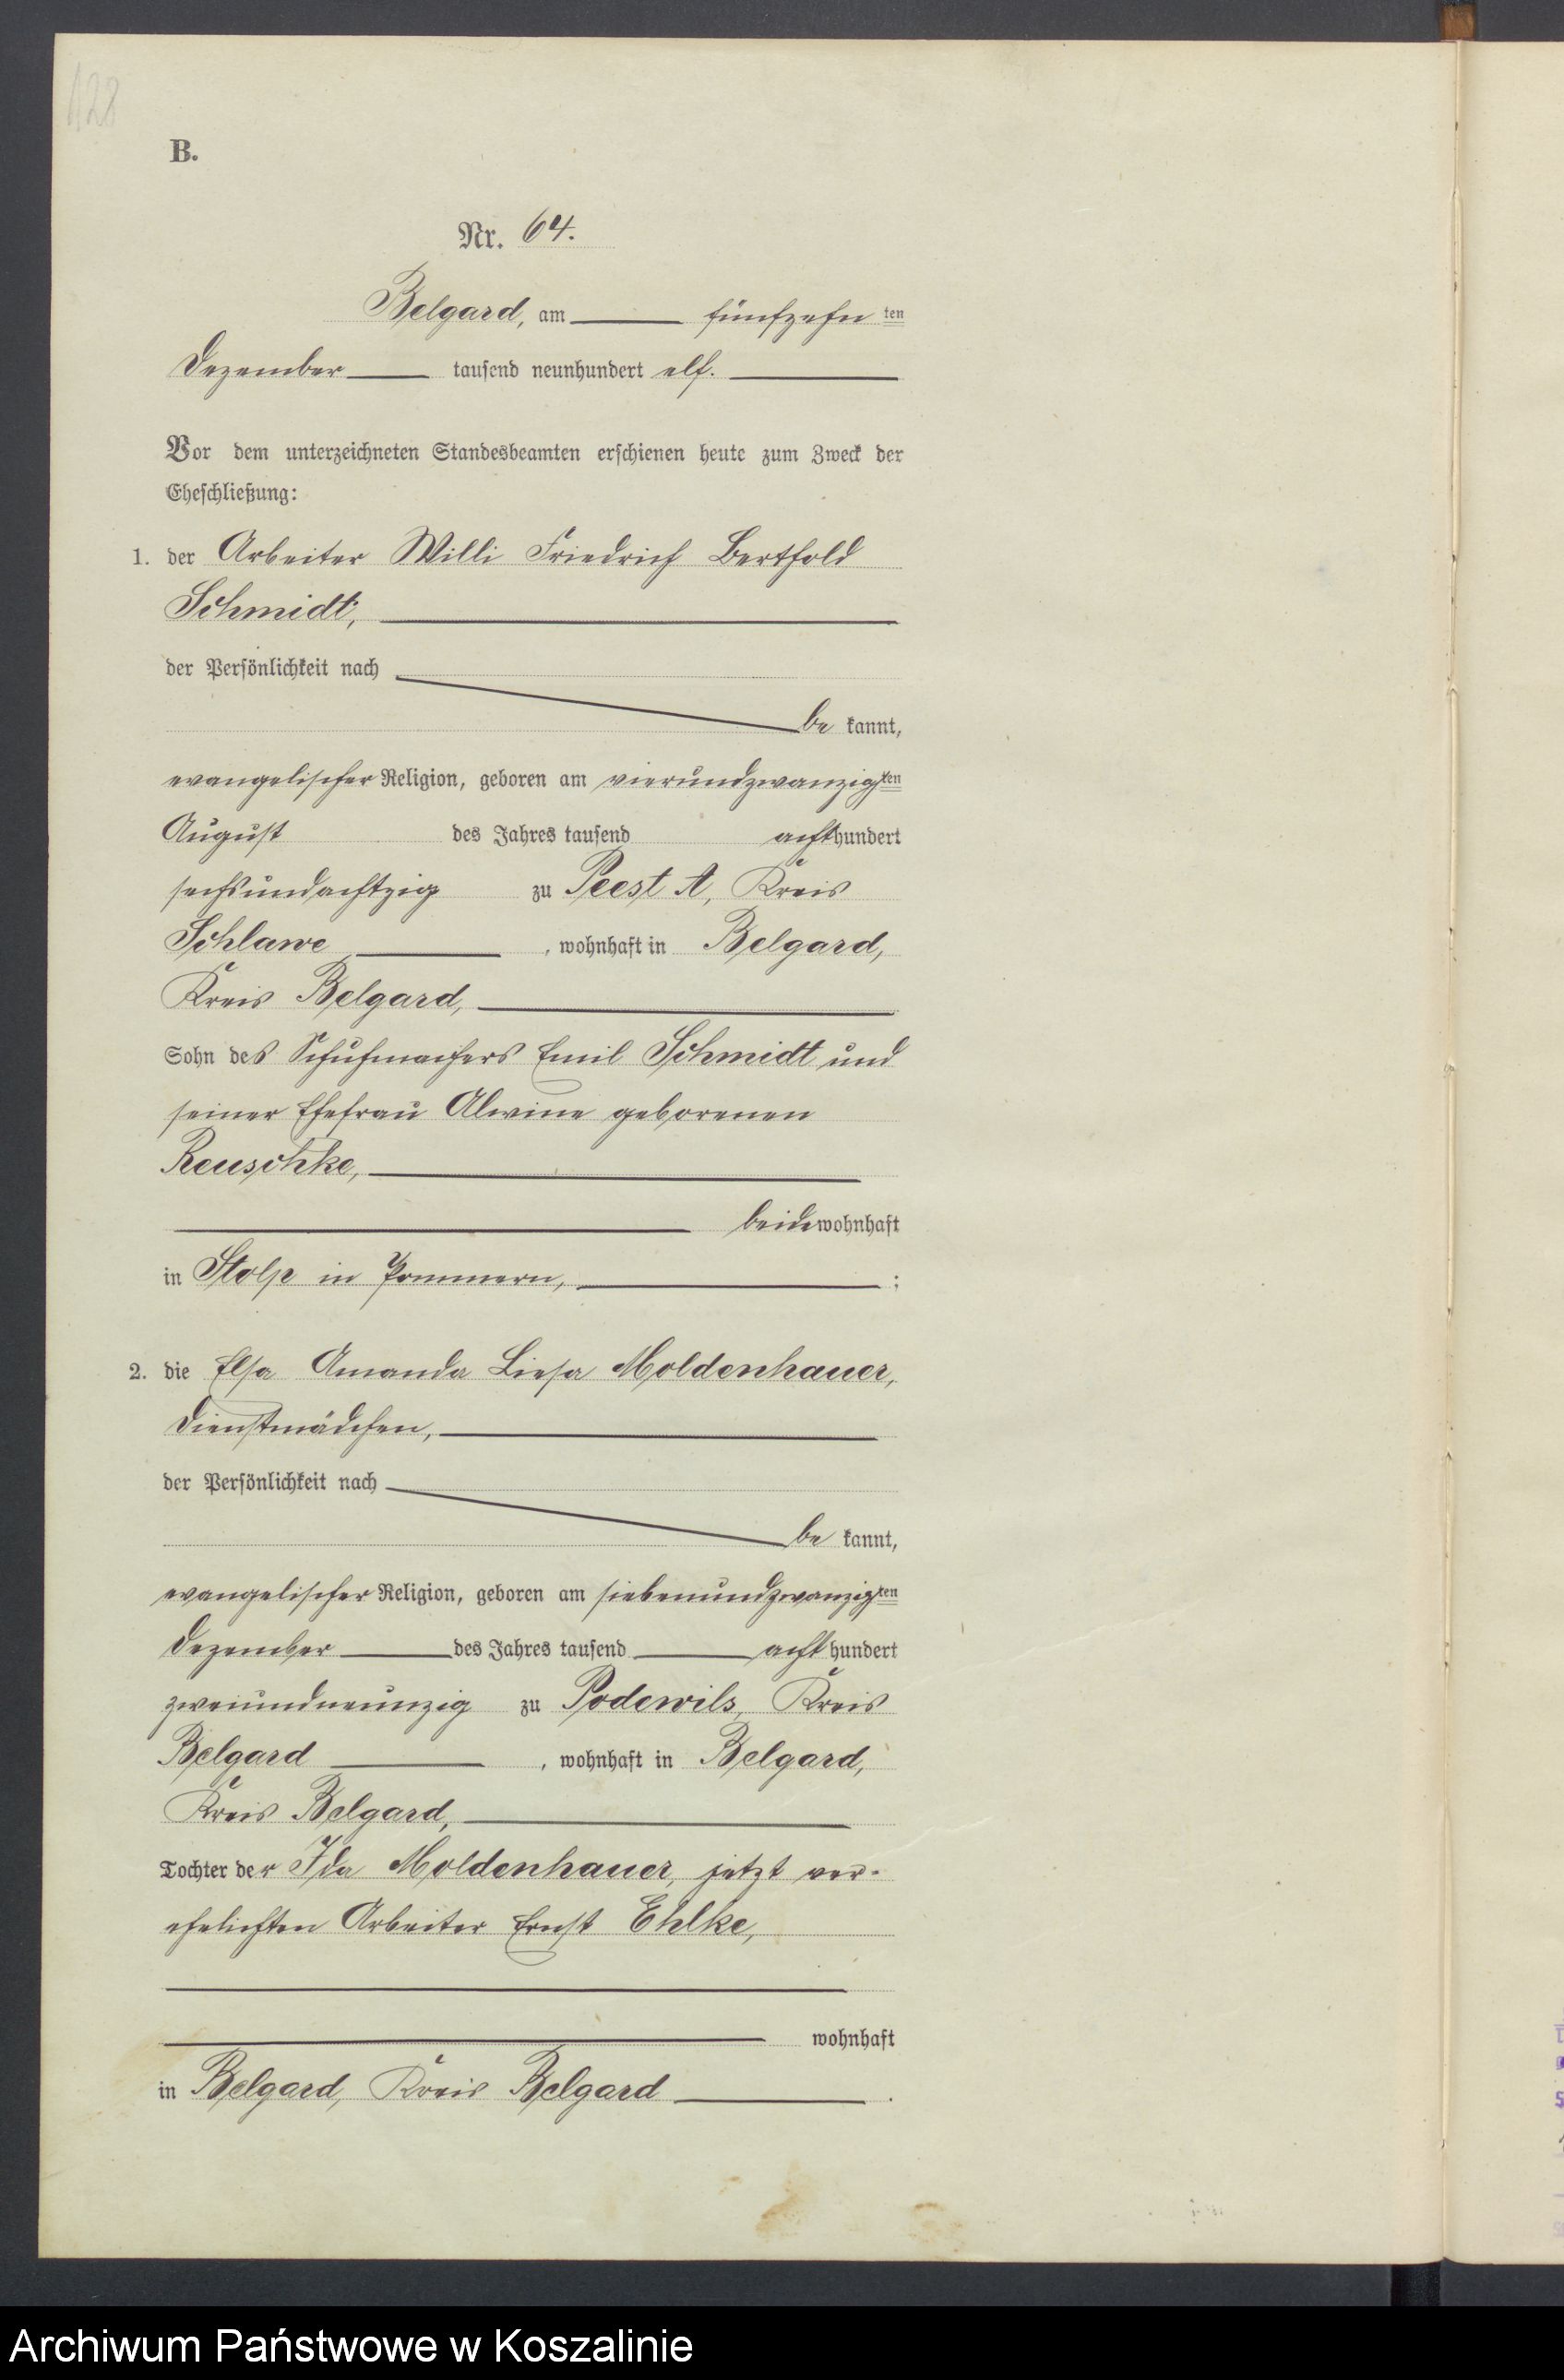 128
B.
Nr. 64.
Belgard, am fünfzehn ten
Dezember tausend neunhundert elf.
Vor dem unterzeichneten Standesbeamten erschienen heute zum Zweck der
Eheschließung:
1. der Arbeiter Willi Friedrich Berthold
Schmidt,
der Persönlichkeit nach
be kannt,
evangelischer Religion, geboren am vierundzwanzigsten
August des Jahres tausend acht hundert
sechsundachtzig zu Peest A, Kreis
Schlawe, wohnhaft in Belgard,
Kreis Belgard,
Sohn des Schuhmachers Emil Schmidt und
seiner Ehefrau Alwine geborenen
Reuschke,
beide wohnhaft
in Stolp in Pommern, ;
2. die Elsa Amanda Liesa Moldenhauer,
Dienstmädchen,
der Persönlichkeit nach
be kannt,
evangelischer Religion, geboren am siebenundzwanzigsten
Dezember des Jahres tausend acht hundert
zweiundneunzig zu Podewils, Kreis
Belgard, wohnhaft in Belgard,
Kreis Belgard,
Tochter der Ida Moldenhauer, jetzt ver-
ehelichten Arbeiter Ernst Ehlke,
wohnhaft
in Belgard, Kreis Belgard .
Archiwum Państwowe w Koszalinie